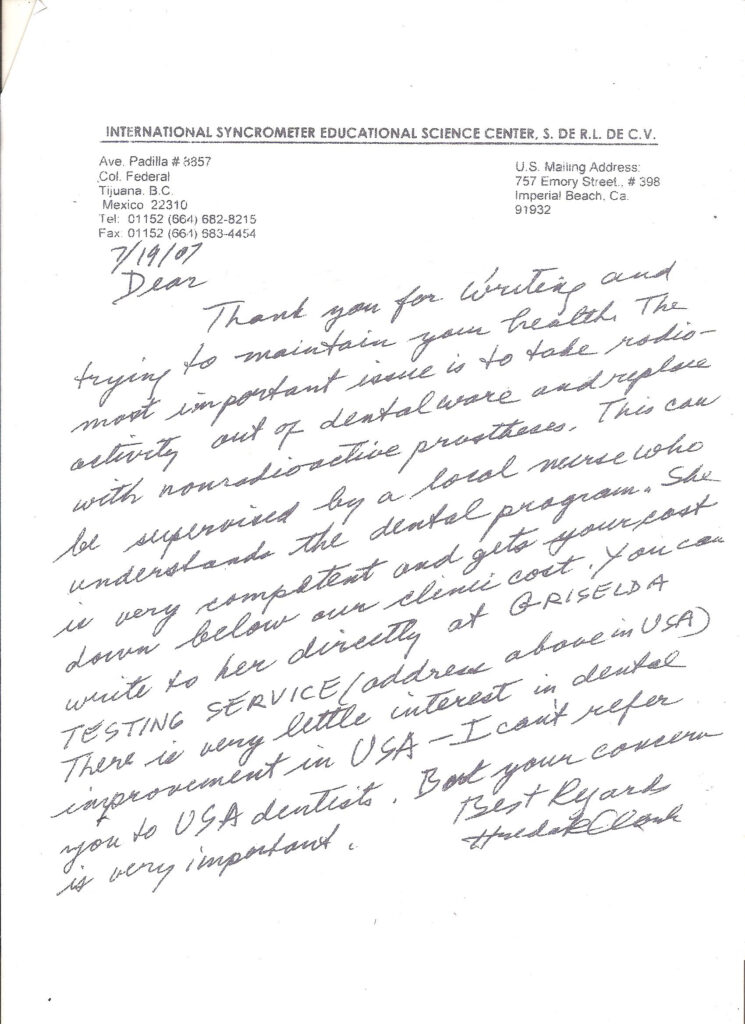 INTERNATIONAL SYNCROMETER EDUCATIONAL SCIENCE CENTER, S. DE R.L. DE C.V.
Ave. Padilla # 8857
Col. Federal
Tijuana. B.C.
Mexico 22310
Tel: 01152 (664) 682-8215
Fax: 01152 (664) 683-4454
U.S. Mailing Address:
757 Emory Street., # 398
Imperial Beach, Ca.
91932
7/19/07
Dear
Thank you for writing and
trying to maintain your health. The
most important issue is to take radio-
activity out of dentalware and replace
with nonradioactive prostheses. This can
be supervised by a local nurse who
understands the dental program. She
is very competent and gets your cost
down below our clinic cost. You can
write to her directly at GRISELDA
TESTING SERVICE (address above in USA)
There is very little interest in dental
improvement in USA - I can't refer
you to USA dentists. But your concern
is very important.
Best Regards
Hulda R Clark